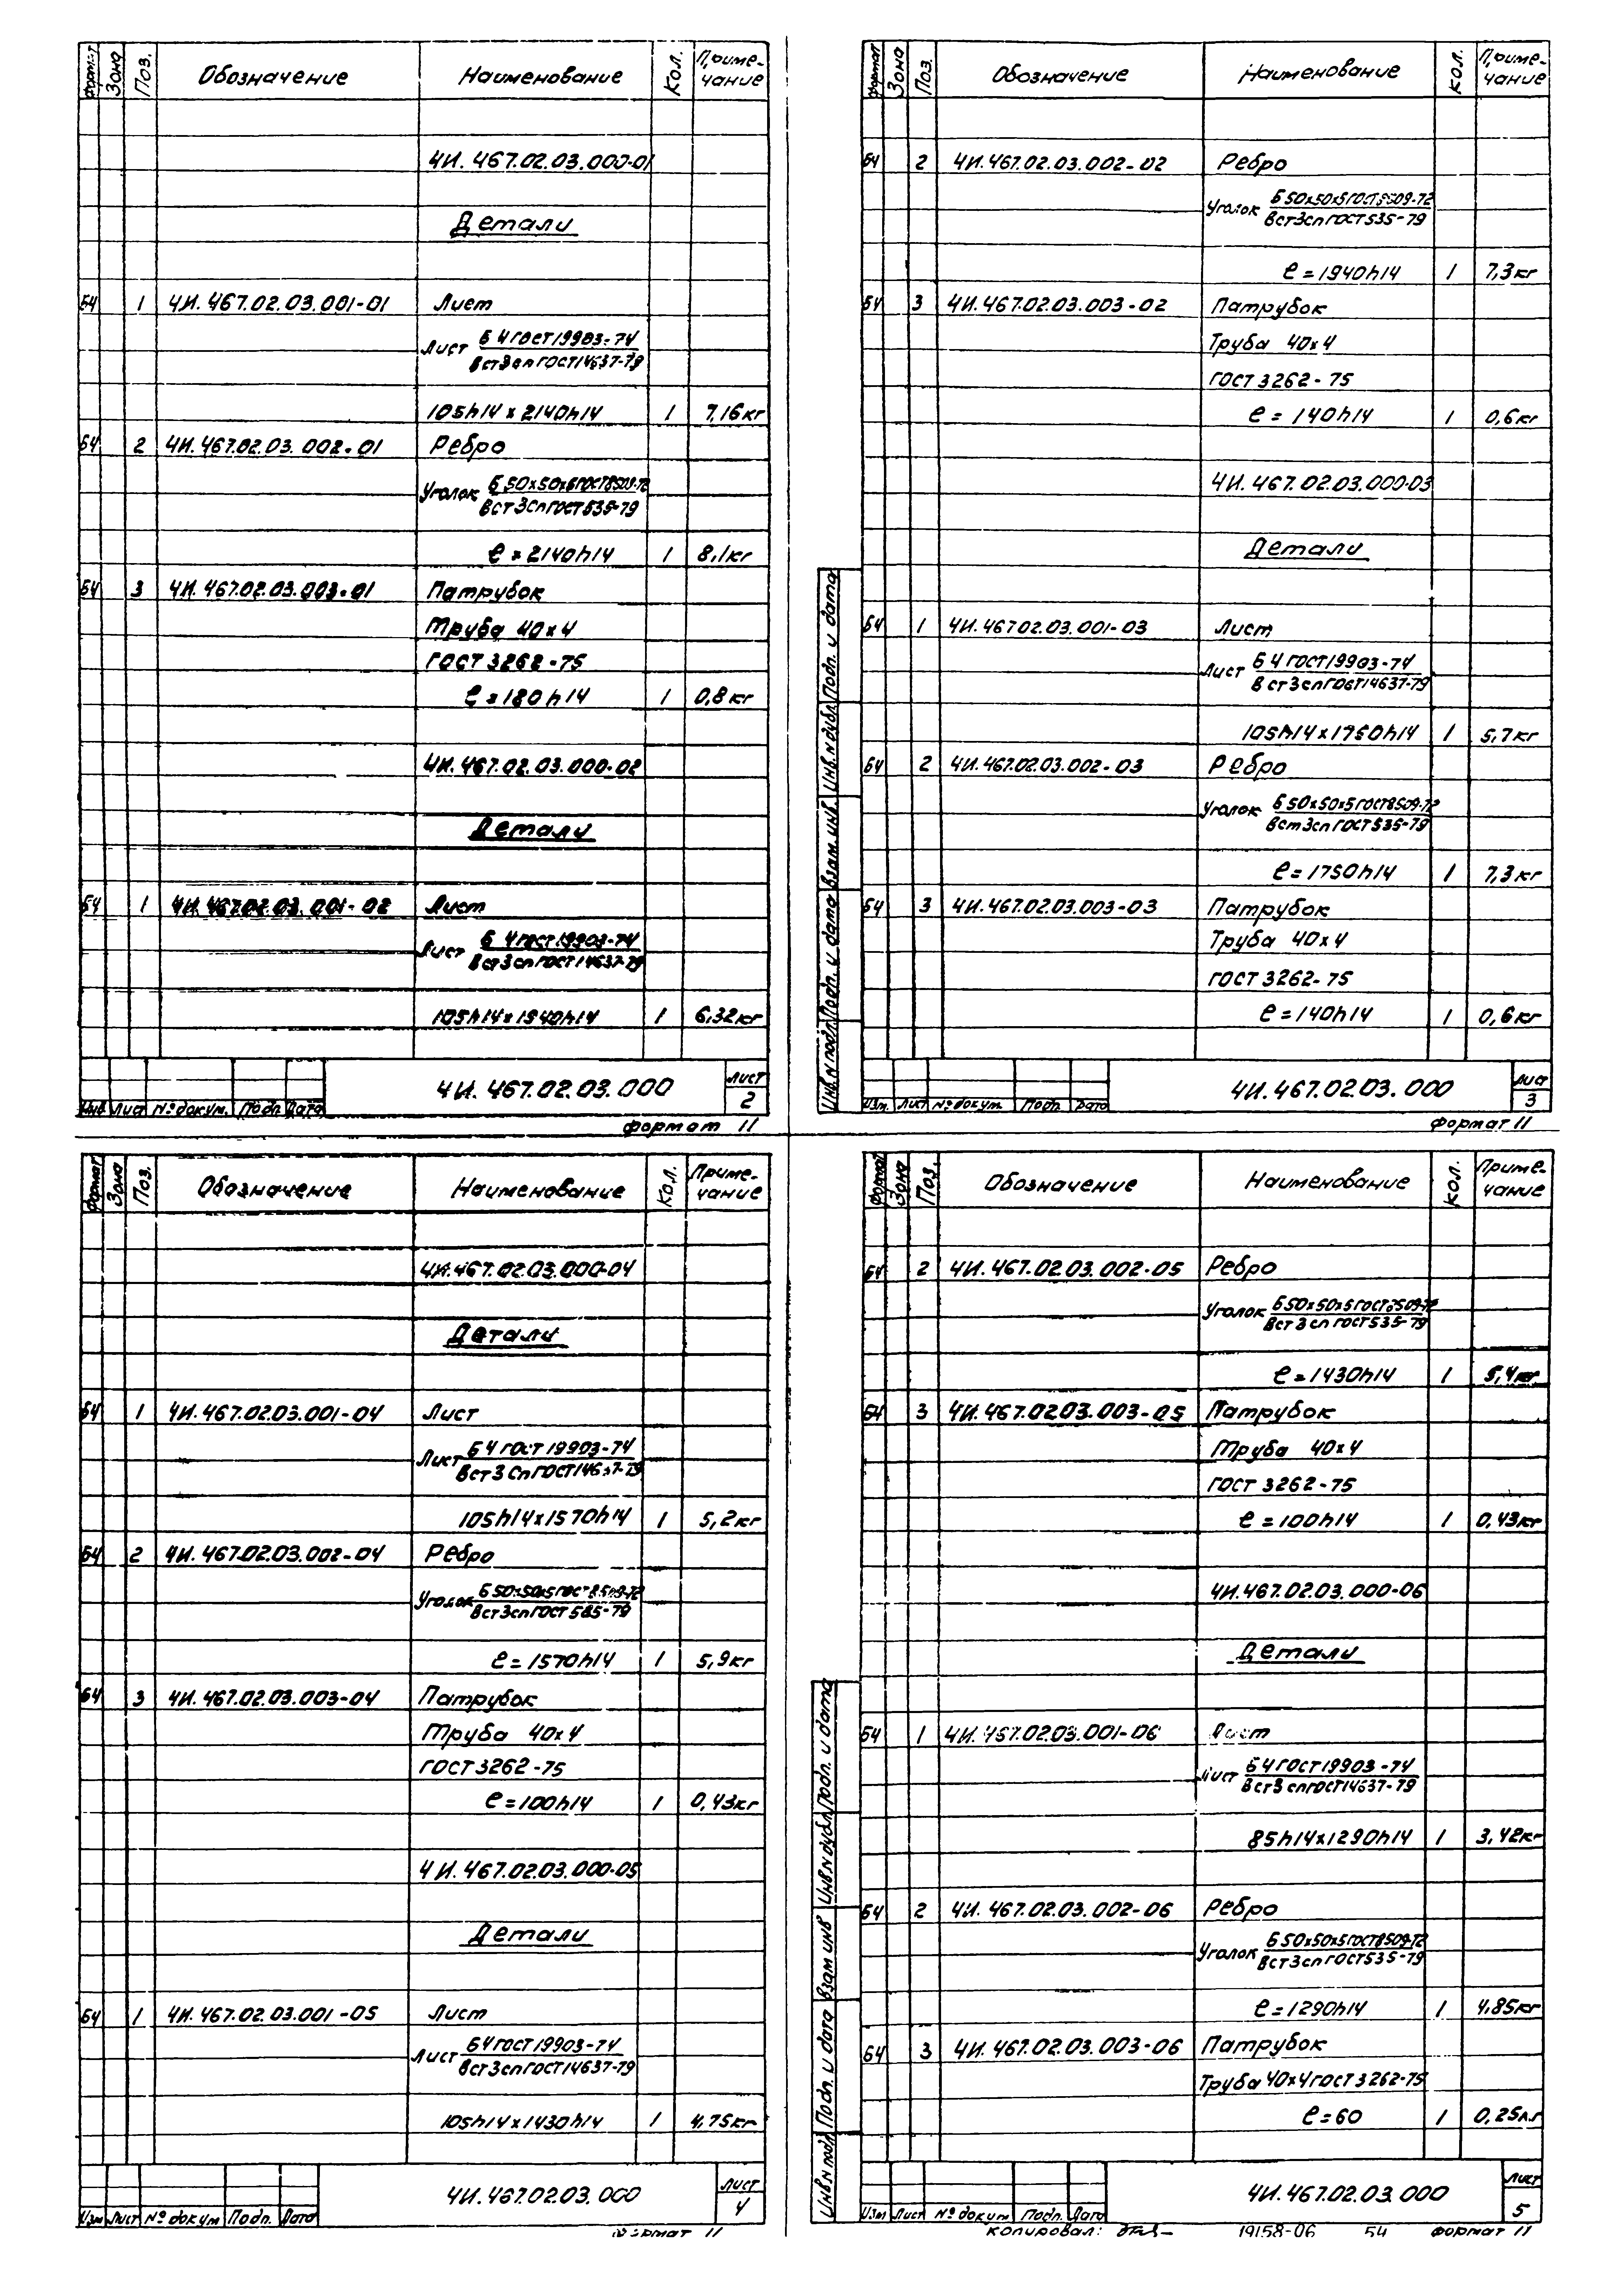 Формат Зона Поз. Обозначение Наименование Кол. Примечание
4И.467.02.03.000-01
Детали
Б4 1 4И.467.02.03.001-01 Лист
Лист Б 4 ГОСТ 19903-74
Вст3сп ГОСТ 14637-79
105h14 x 2140h14 1 7,16кг
Б4 2 4И.467.02.03.002-01 Ребро
Уголок Б 50x50x5 ГОСТ 8509-72
Вст3сп ГОСТ 535-79
ℓ = 2140h14 1 8,1кг
Б4 3 4И.467.02.03.003-01 Патрубок
Труба 40x4
ГОСТ 3262-75
ℓ = 180h14 1 0,8кг
4И.467.02.03.000-02
Детали
Б4 1 4И.467.02.03.001-02 Лист
Лист Б 4 ГОСТ 19903-74
Вст3сп ГОСТ 14637-79
105h14 x 1940h14 1 6,32кг
4И.467.02.03.000 Лист
2
Изм Лист № докум. Подп. Дата
Формат 11
Формат Зона Поз. Обозначение Наименование Кол. Примечание
Б4 2 4И.467.02.03.002-02 Ребро
Уголок Б 50x50x5 ГОСТ 8509-72
Вст3сп ГОСТ 535-79
ℓ = 1940h14 1 7,3кг
Б4 3 4И.467.02.03.003-02 Патрубок
Труба 40x4
ГОСТ 3262-75
ℓ = 140h14 1 0,6кг
4И.467.02.03.000-03
Детали
Б4 1 4И.467.02.03.001-03 Лист
Лист Б 4 ГОСТ 19903-74
Вст3сп ГОСТ 14637-79
105h14 x 1750h14 1 5,7кг
Б4 2 4И.467.02.03.002-03 Ребро
Уголок Б 50x50x5 ГОСТ 8509-72
Вст3сп ГОСТ 535-79
ℓ = 1750h14 1 7,3кг
Б4 3 4И.467.02.03.003-03 Патрубок
Труба 40x4
ГОСТ 3262-75
ℓ = 140h14 1 0,6кг
Инв.N подл. Подп. и дата Взам.инв. Инв.N дубл. Подп. и дата
4И.467.02.03.000 Лис
3
Изм. Лист № докум. Подп. Дата
Формат 11
Формат Зона Поз. Обозначение Наименование Кол. Примечание
4И.467.02.03.000-04
Детали
Б4 1 4И.467.02.03.001-04 Лист
Лист Б 4 ГОСТ 19903-74
Вст3сп ГОСТ 14637-79
105h14 x 1570h14 1 5,2кг
Б4 2 4И.467.02.03.002-04 Ребро
Уголок Б 50x50x5 ГОСТ 8509-72
Вст3сп ГОСТ 585-79
ℓ = 1570h14 1 5,9кг
Б4 3 4И.467.02.03.003-04 Патрубок
Труба 40x4
ГОСТ 3262-75
ℓ = 100h14 1 0,43кг
4И.467.02.03.000-05
Детали
Б4 1 4И.467.02.03.001-05 Лист
Лист Б 4 ГОСТ 19903-74
Вст3сп ГОСТ 14637-79
105h14 x 1430h14 1 4,75кг
4И.467.02.03.000 Лист
4
Изм Лист № докум Подп. Дата
Формат 11
Формат Зона Поз. Обозначение Наименование Кол. Примечание
Б4 2 4И.467.02.03.002-05 Ребро
Уголок Б 50x50x5 ГОСТ 8509-72
Вст3сп ГОСТ 535-79
ℓ = 1430h14 1 5,4кг
Б4 3 4И.467.02.03.003-05 Патрубок
Труба 40x4
ГОСТ 3262-75
ℓ = 100h14 1 0,43кг
4И.467.02.03.000-06
Детали
Б4 1 4И.467.02.03.001-06 Лист
Лист Б 4 ГОСТ 19903-74
Вст3сп ГОСТ 14637-79
85h14 x 1290h14 1 3,42кг
Б4 2 4И.467.02.03.002-06 Ребро
Уголок Б 50x50x5 ГОСТ 8509-72
Вст3сп ГОСТ 535-79
ℓ = 1290h14 1 4,85кг
Б4 3 4И.467.02.03.003-06 Патрубок
Труба 40x4 ГОСТ 3262-75
ℓ = 60 1 0,25кг
Инв.N подл. Подп. и дата Взам инв Инв.N дубл. Подп. и дата
4И.467.02.03.000 Лист
5
Изм Лист № докум Подп. Дата
Копировал: 19158-06 54 Формат 11